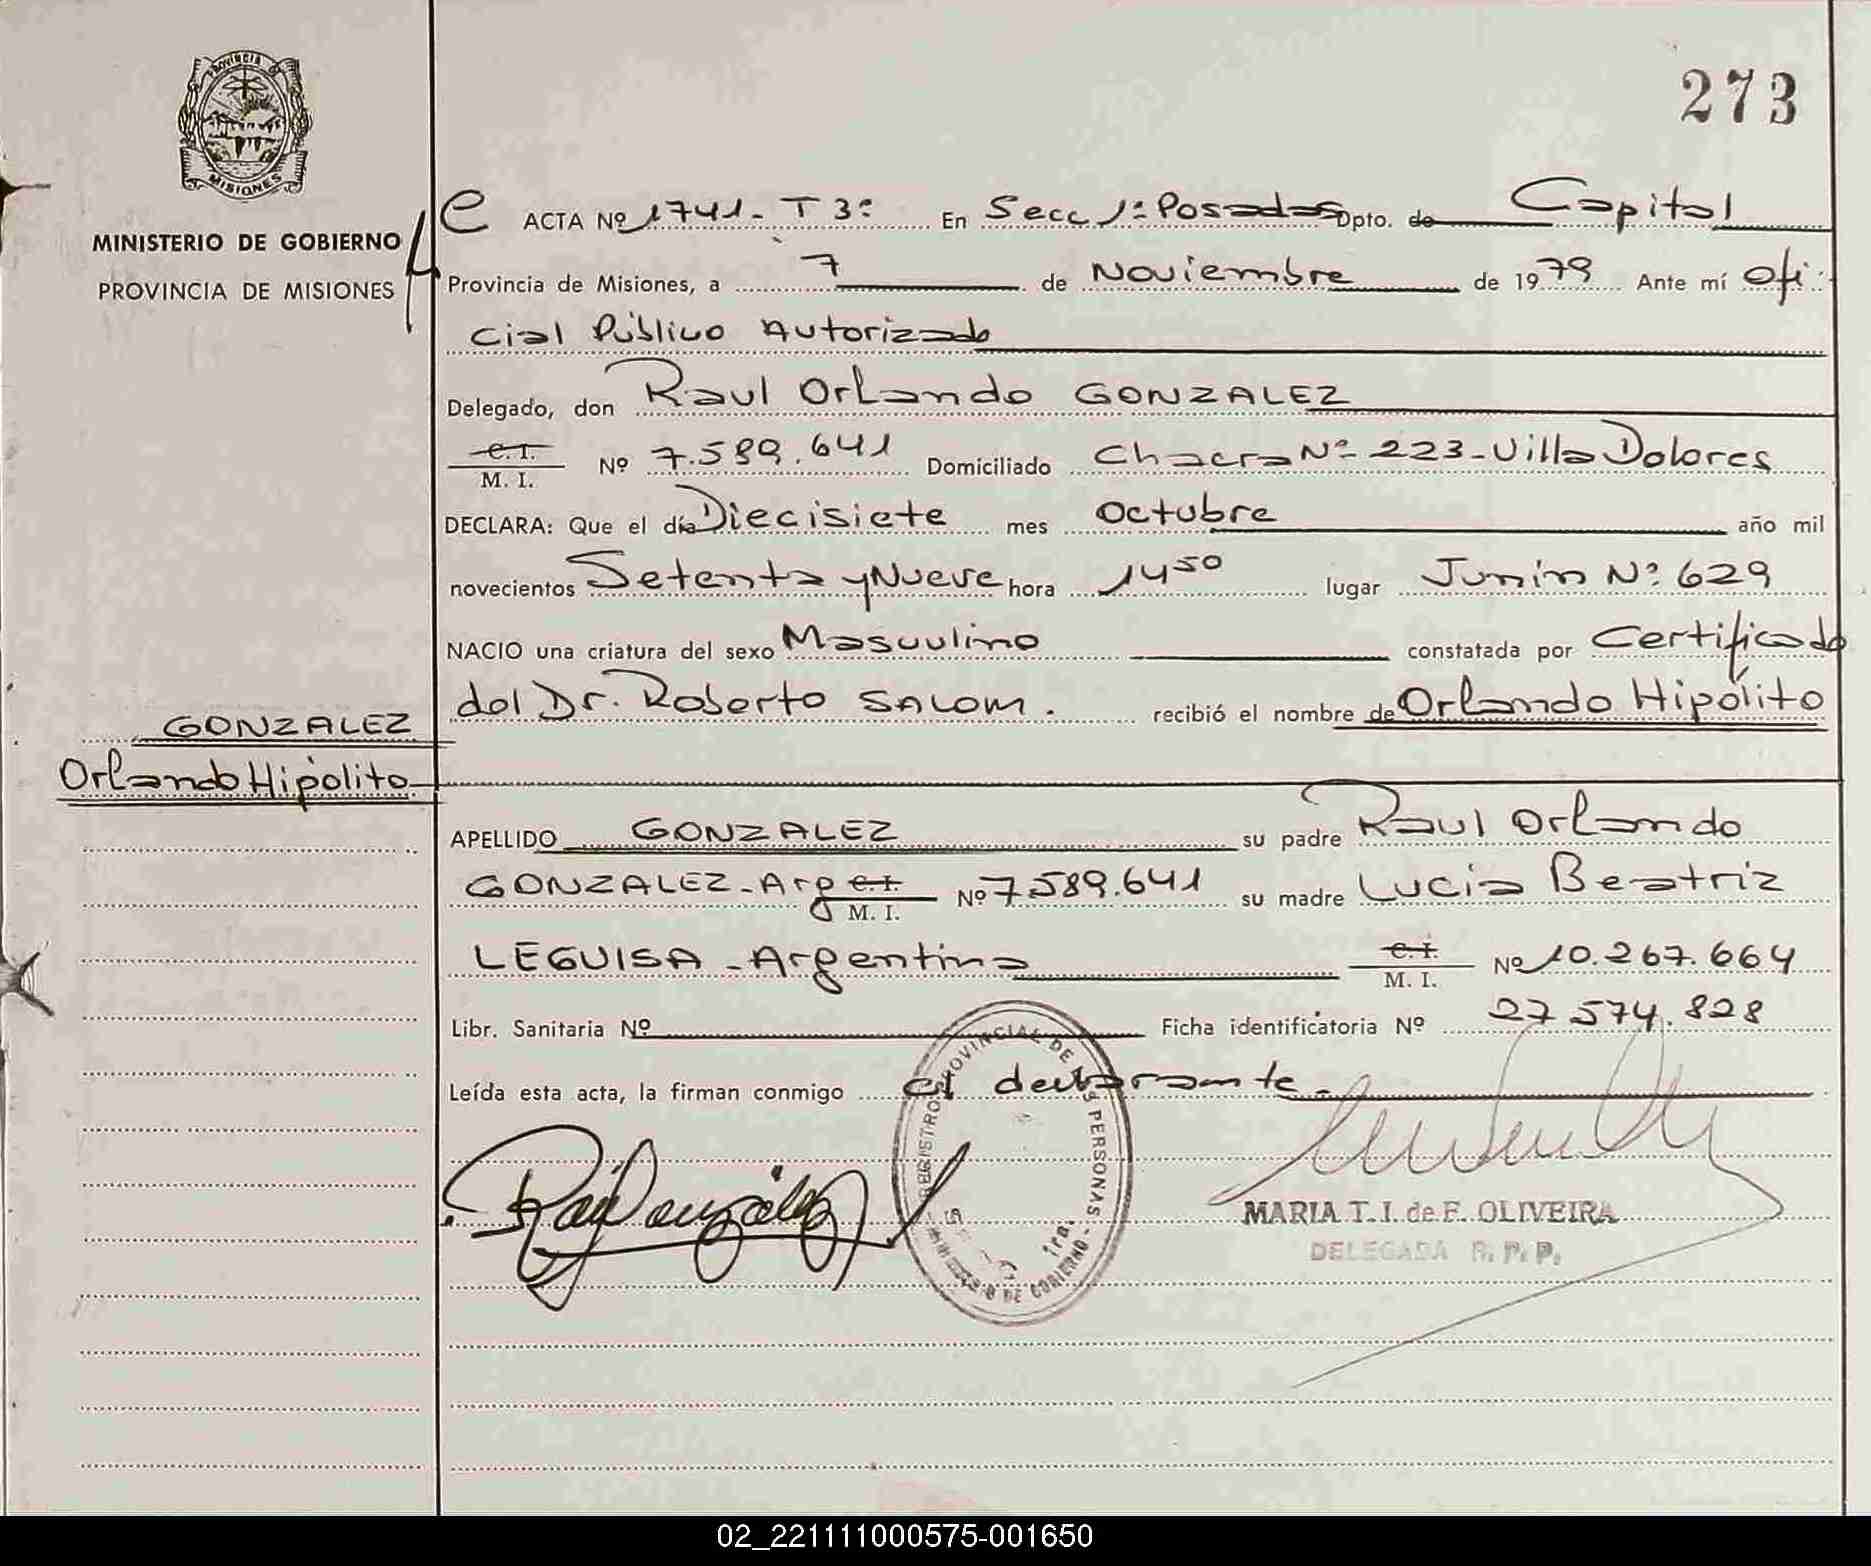 273
PROVINCIA DE
MISIONES
MINISTERIO DE GOBIERNO
PROVINCIA DE MISIONES
e ACTA Nº 1741- T 3º En Secc 1ª Posadas Dpto. de Capital
Provincia de Misiones, a 7 de Noviembre de 1979 Ante mí Ofi
cial Público Autorizado
Delegado, don Raul Orlando GONZALEZ
C. I. / M. I. Nº 7.589.641 Domiciliado Chacra Nº 223-Villa Dolores
DECLARA: Que el día Diecisiete mes Octubre año mil
novecientos Setenta y Nueve hora 14 50 lugar Junin Nº 629
NACIO una criatura del sexo Masculino constatada por Certificado
del Dr. Roberto SALOM. recibió el nombre de Orlando Hipólito
GONZALEZ
Orlando Hipólito
APELLIDO GONZALEZ su padre Raul Orlando
GONZALEZ-Arg C. I. / M. I. Nº 7.589.641 su madre Lucia Beatriz
LEGUISA - Argentina C. I. / M. I. Nº 10.267.664
Libr. Sanitaria Nº Ficha identificatoria Nº 27 574.828
Leída esta acta, la firman conmigo el declarante.
REGISTRO PROVINCIAL DE LAS PERSONAS
1ra.
MINISTERIO DE GOBIERNO
MARIA T. I. de F. OLIVEIRA
DELEGADA R. P. P.
02_221111000575-001650